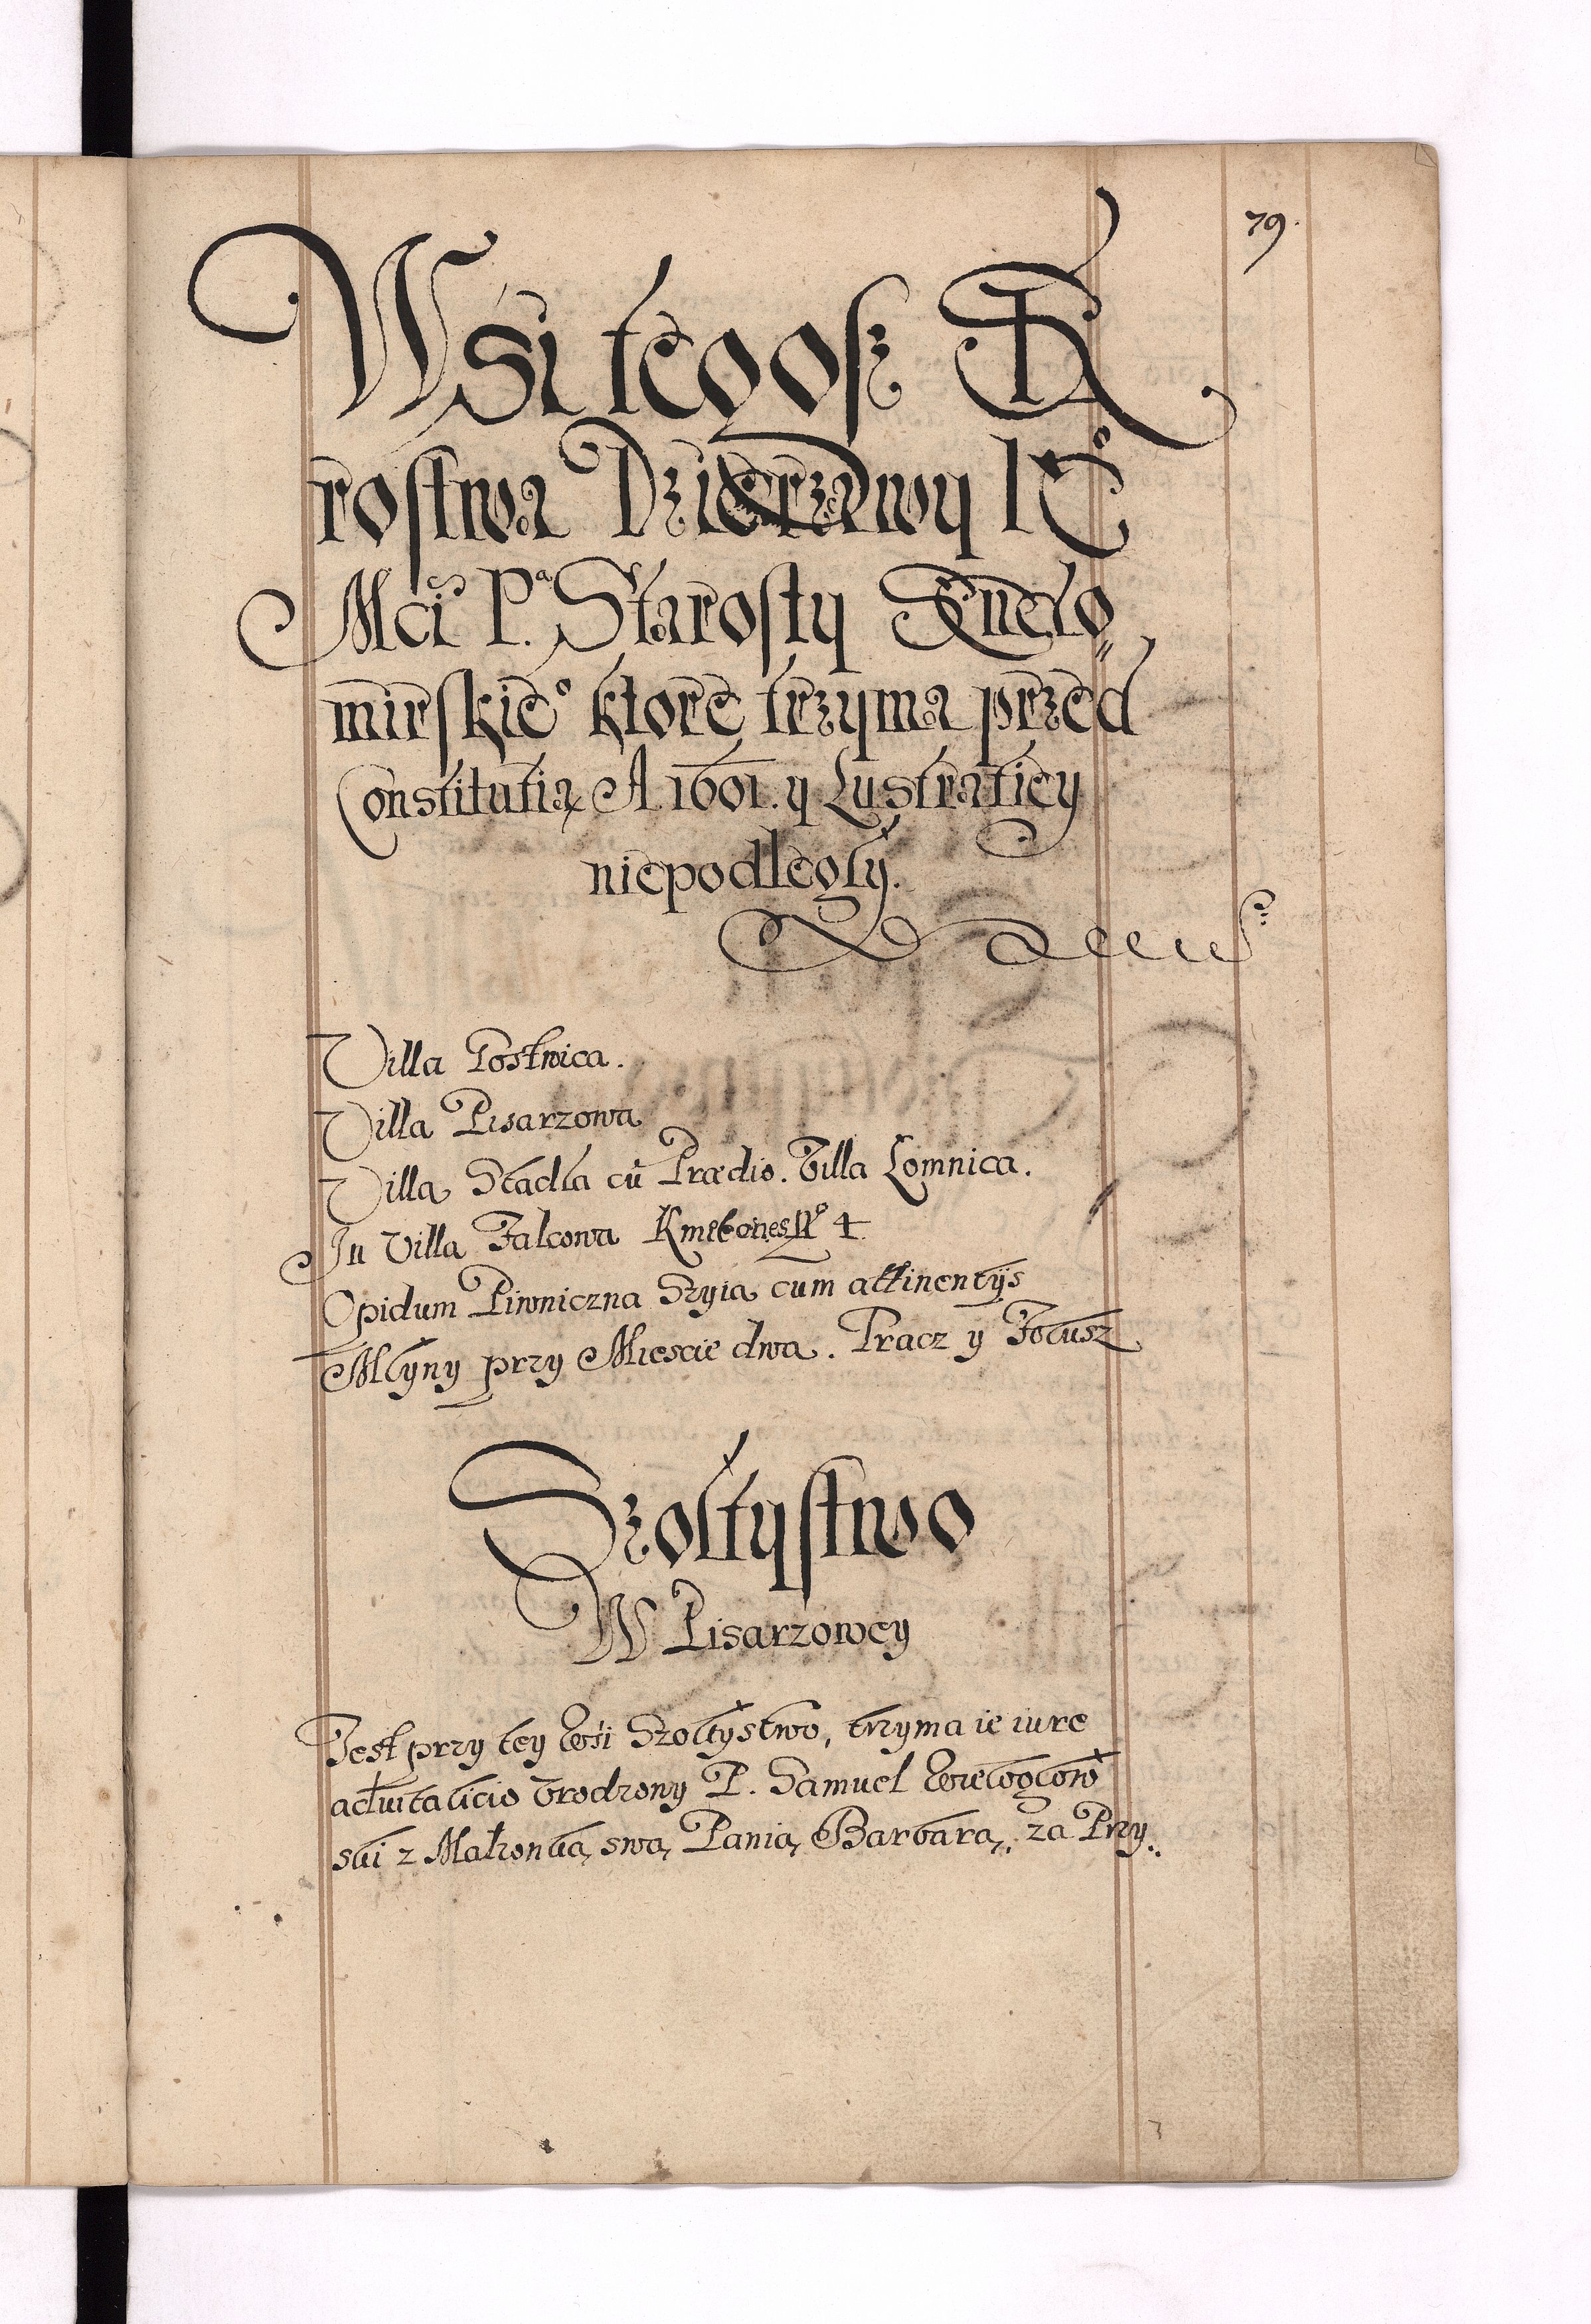 79.
Wsi tegosz Sta
rostwa Dzierzawy IE°
Mci P.ª Starosty Sendo
mirskie° ktore trzyma przed
Constitutią A 1601. y Lustratiey
niepodległy.
Villa Postwica.
Villa Pisarzowa
Villa Stadla cũ Prædio. Villa Lomnica.
In Villa Falcowa Kmethones N° 4
Opidum Piwniczna Szyia cum attinentijs
Młyny przy Miescie dwa. Tracz y Folusz
Szołtystwo
W Pisarzowey
Jest przy tey Wsi Szołtystwo, trzyma ie iure
advitalicio Vrodzony P. Samuel Wieloglow
ski z Małzonką swą Panią Barbarą, za Przy